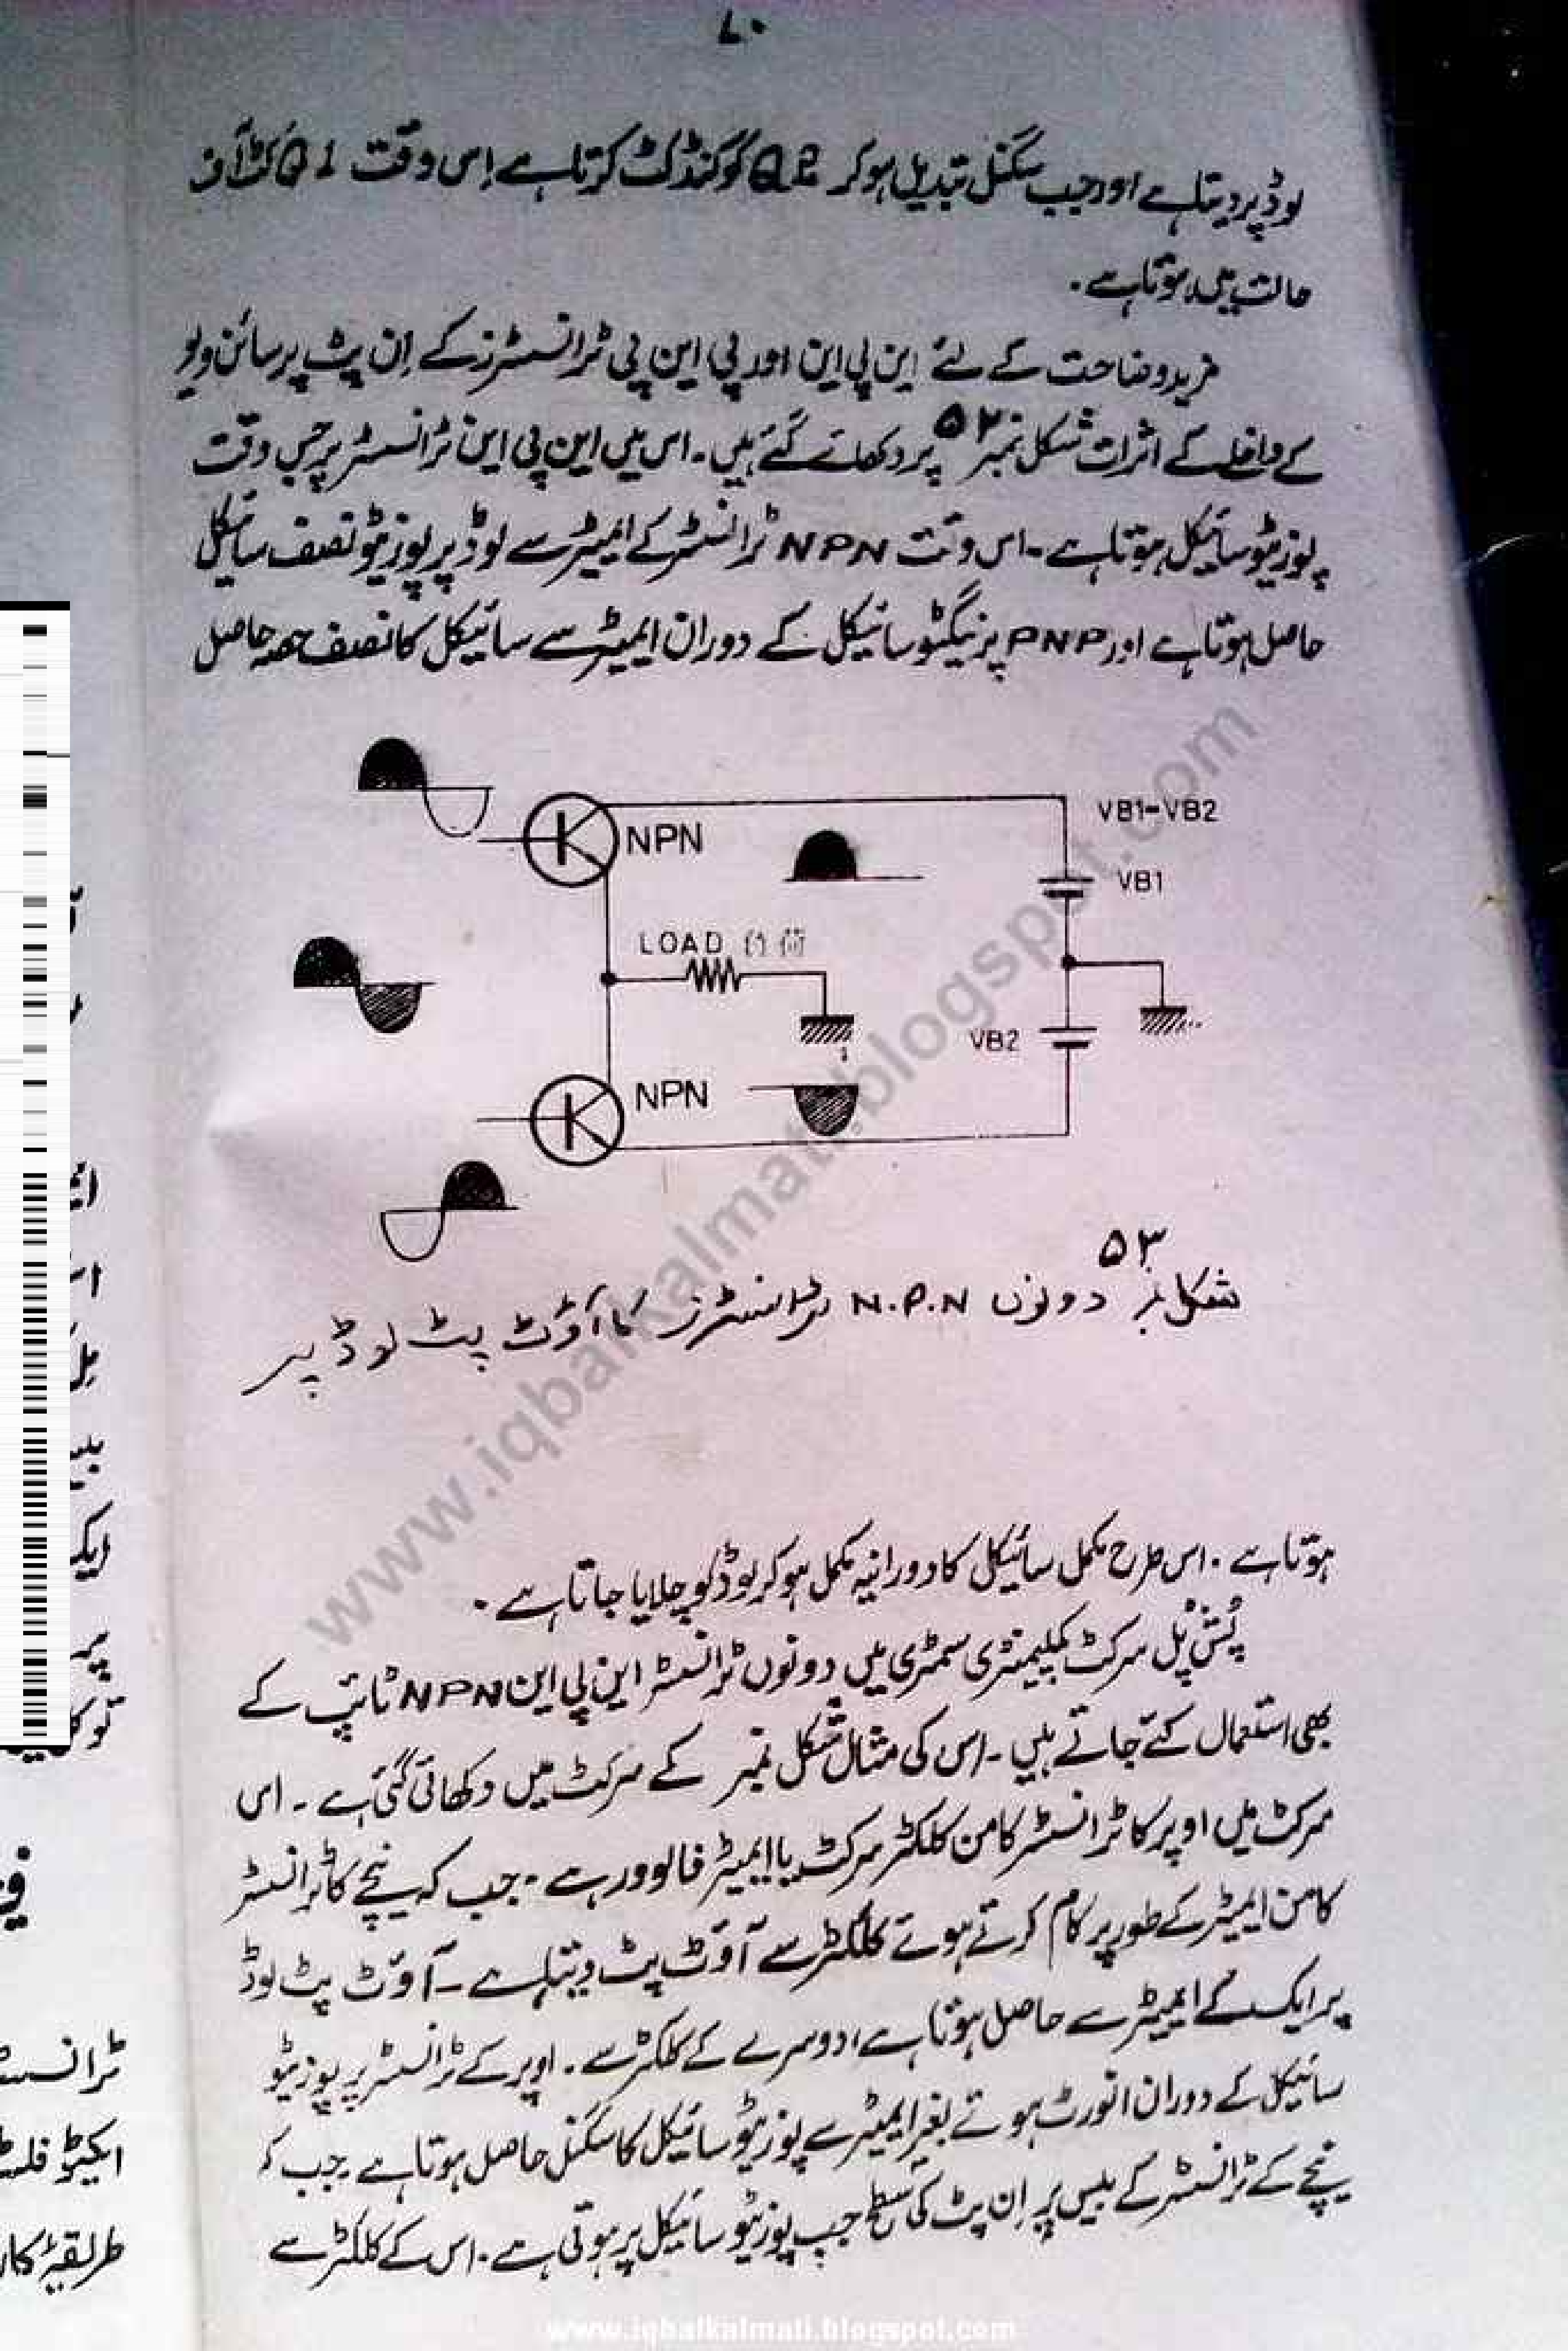 ۷۰
لوڈ پر دیتا ہے اور جب سگنل تبدیل ہو کر Q2 کو کنڈکٹ کرتا ہے اِس وقت Q1 کٹ آف
حالت میں ہوتا ہے۔
مزید وضاحت کے لئے این پی این اور پی این پی ٹرانسسٹرز کے اِن پٹ پر سائن ویو
کے داخلے کے اثرات شکل نمبر ۵۲ پر دکھائے گئے ہیں۔ اس میں این پی این ٹرانسسٹر پر جس وقت
پوزیٹو سائیکل ہوتا ہے۔ اس وقت NPN ٹرانسسٹر کے ایمیٹر سے لوڈ پر پوزیٹو نصف سائیکل
حاصل ہوتا ہے اور PNP پر نیگیٹو سائیکل کے دوران ایمیٹر سے سائیکل کا نصف حصہ حاصل
VB1-VB2
NPN
VB1
LOAD
VB2
NPN
شکل نمبر ۵۳ دونوں N.P.N ٹرانسسٹرز کا آؤٹ پٹ لوڈ پر
ہوتا ہے۔ اس طرح مکمل سائیکل کا دورانیہ مکمل ہو کر لوڈ کو چلایا جاتا ہے۔
پُش پُل سرکٹ کمپلیمنٹری سمٹری میں دونوں ٹرانسسٹر این پی این NPN ٹائپ کے
بھی استعمال کئے جاتے ہیں۔ اس کی مثال شکل نمبر کے سرکٹ میں دکھائی گئی ہے۔ اس
سرکٹ میں اوپر کا ٹرانسسٹر کامن کلکٹر سرکٹ یا ایمیٹر فالوور ہے۔ جب کہ نیچے کا ٹرانسسٹر
کامن ایمیٹر کے طور پر کام کرتے ہوئے کلکٹر سے آؤٹ پٹ دیتا ہے۔ آؤٹ پٹ لوڈ
پر ایک کے ایمیٹر سے حاصل ہوتا ہے، دوسرے کے کلکٹر سے۔ اوپر کے ٹرانسسٹر پر پوزیٹو
سائیکل کے دوران انورٹ ہوئے بغیر ایمیٹر سے پوزیٹو سائیکل کا سگنل حاصل ہوتا ہے جب کہ
نیچے کے ٹرانسسٹر کے بیس پر اِن پٹ کی سطح جب پوزیٹو سائیکل پر ہوتی ہے۔ اس کے کلکٹر سے
www.iqbalkalmati.blogspot.com
www.iqbalkalmati.blogspot.com